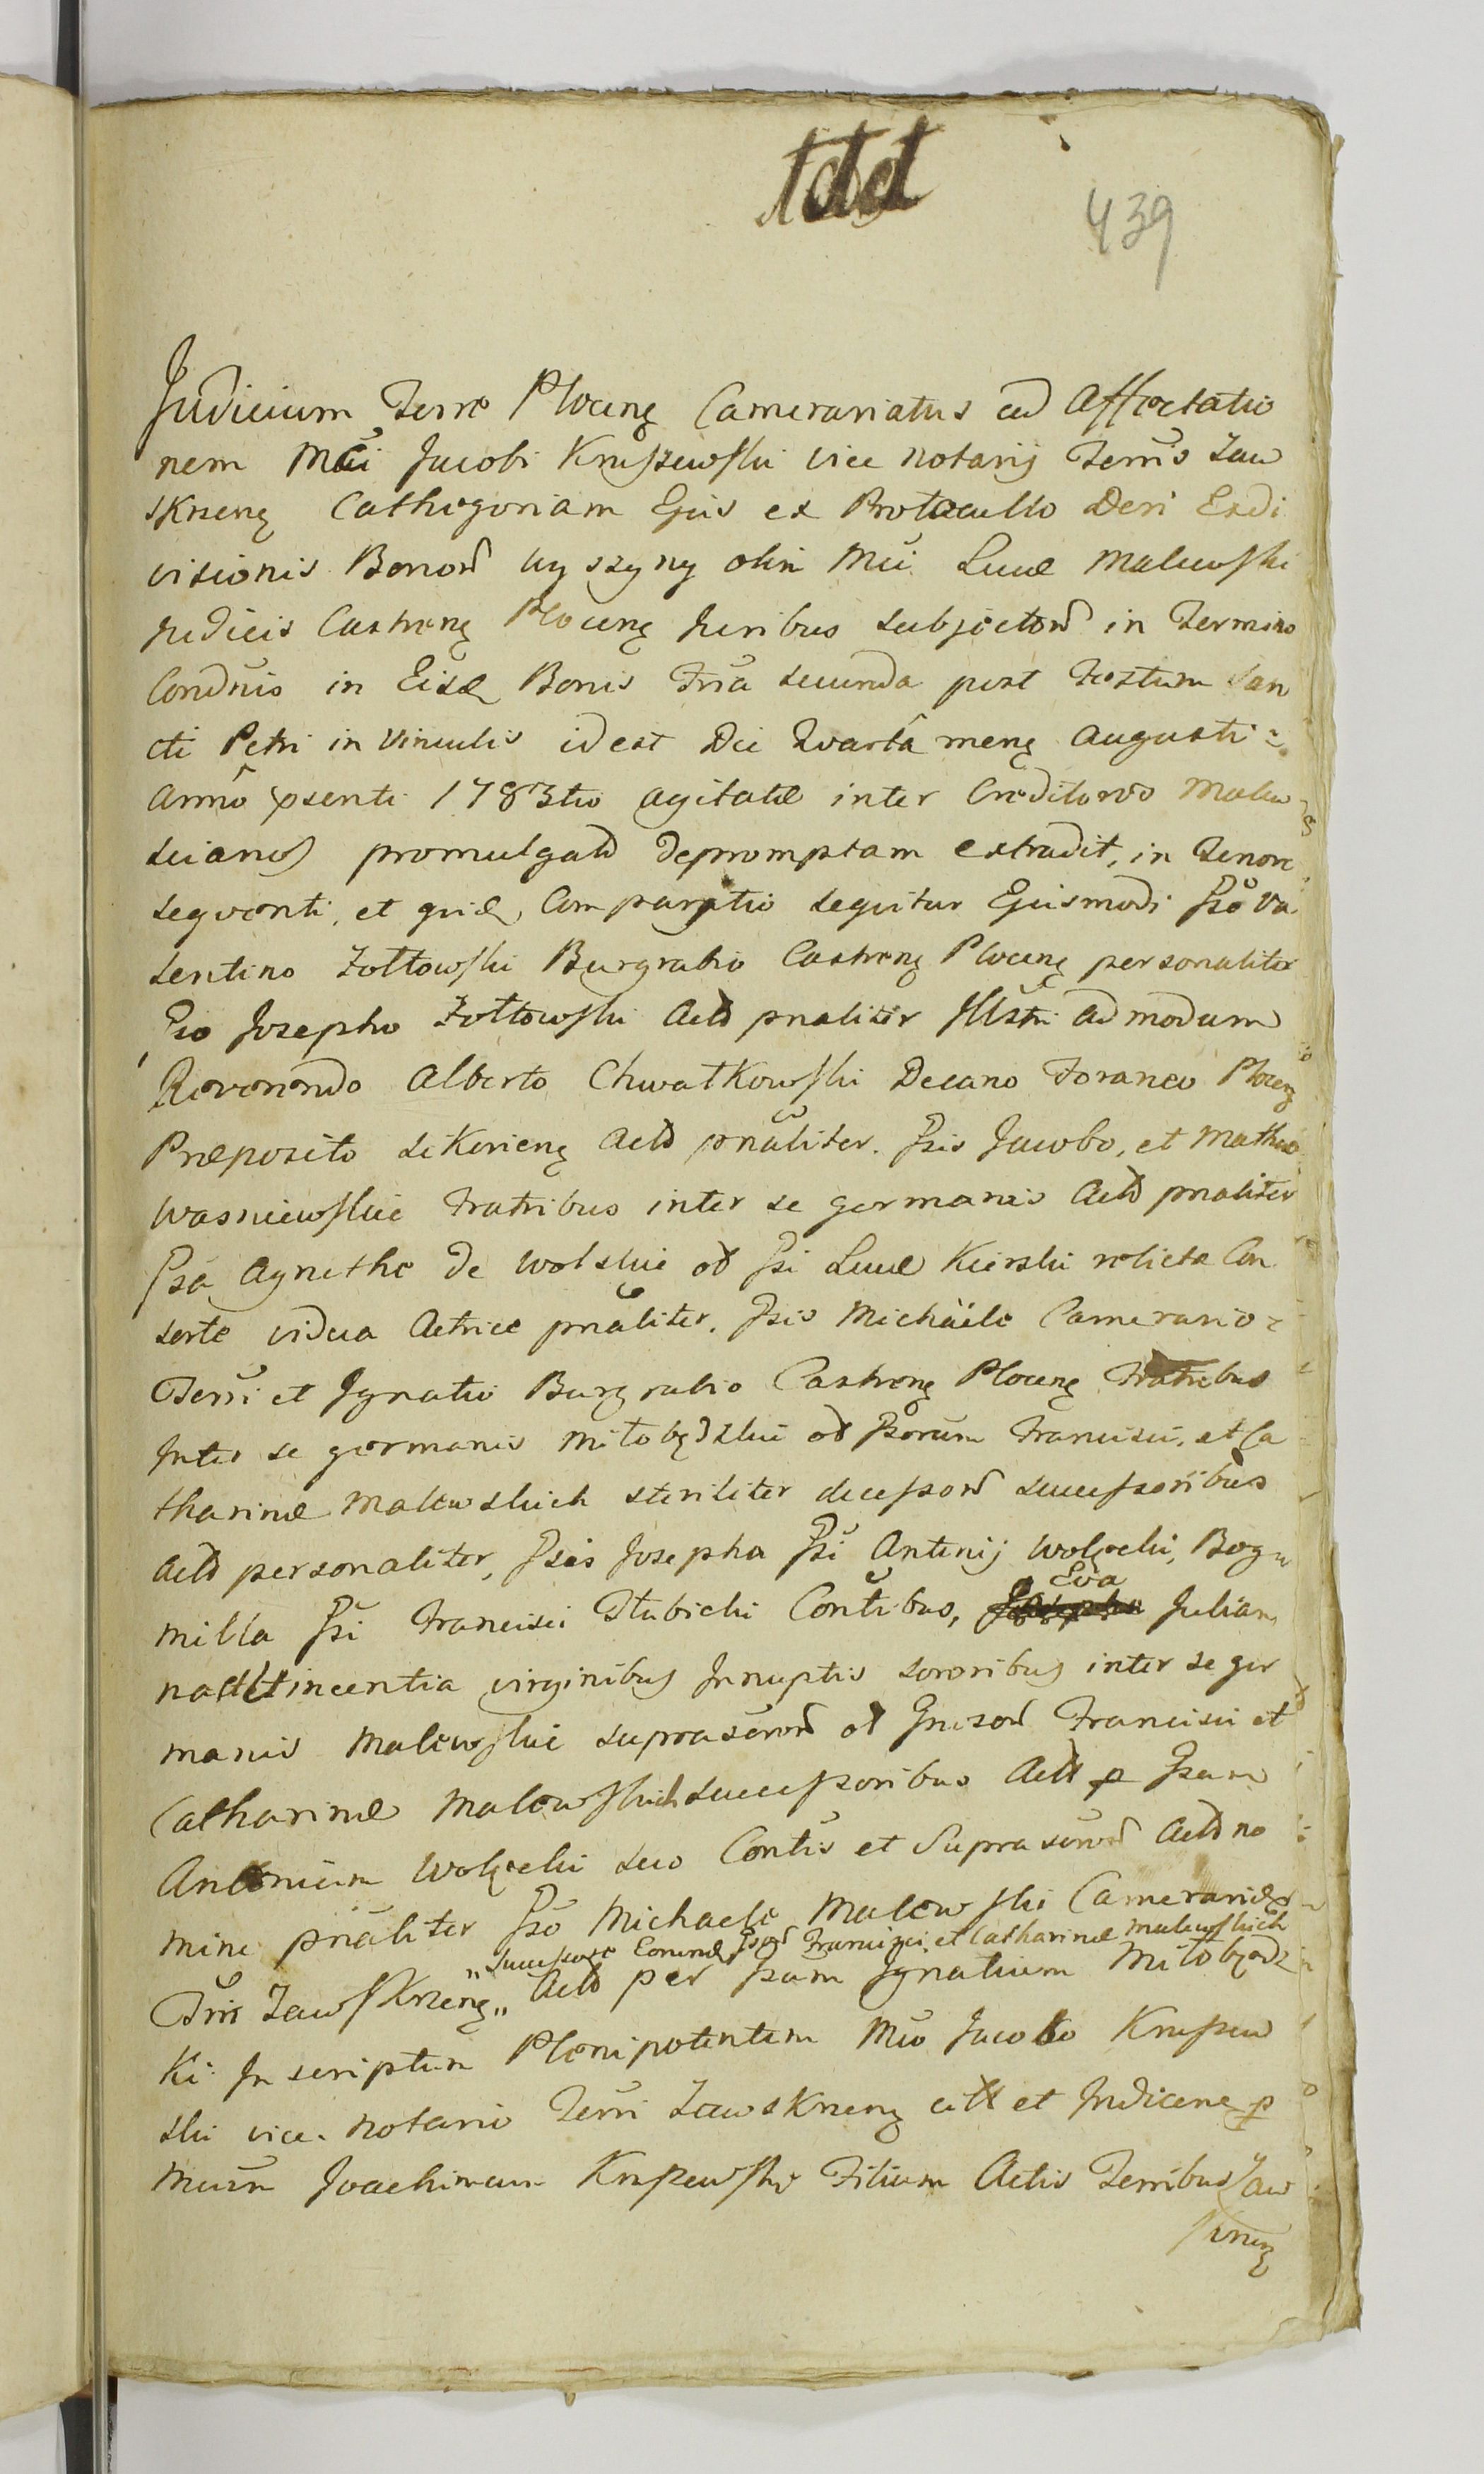 439
Judicium Terre Plocenȩ Camerariatus ad Affectatio
nem Mci Jacobi Kruszewski vice Notarij Terris Zaw
skrzenȩ Cathegoriam Ejus ex Protocullo Dcri Exdi
visionis Bonord Wyszyny olin Mci Lucæ Malewski
Judicis Castrenȩ Plocenȩ Juribus subjectord in Termino
Condnis in Eisd Bonis Fria secunda post Festum San
cti Petri in Vinculis idest Die Qvartâ menȩ Augusti
Annô psenti 1783tio agitatæ inter Creditores Malew
scianos promulgatd depromptam extradit, in Tenore
seqventi, et quid, Comparatio seqvitur Ejusmodi Gso Va
lentino Żołtowski Burgrabio Castrenȩ Plocenȩ personaliter
Gso Josepho Żołtowski Actd pnaliter Illstri Admodum
Reverendo Alberto Chwatkowski Decano Foraneo Plocenȩ
Præposito Sikorienȩ Actd pnaliter. Gsis Jacobo, et Matheo
Wasniewskie Fratribus inter se germanis Actd pnaliter
Gsa Agnethe de Wolskie od Gsi Lucæ Kierski relicta Con
sorte vidua Actrice pnaliter. Gsis Michäele Camerario
Terri et Ignatio Burgrabio Castrenȩ Plocenȩ Fratribus
Inter se germanis Miłobȩdzkie od Gsorum Francisci, et Ca
tharinæ Malewskich steriliter decessord successoribus
Actd personaliter, Gsis Josepha Gsi Antonij Wolȩcki, Bogu
milla Gsi Francisci Dłubicki Contibus, Eva Julian
na et Vincentia virginibus Innuptis sororibus inter se ger
manis Malewskie suprascrord od Gnisord Francisci et
Catharinæ Malewskich successoribus Actd p Gsum
Antonium Wolȩcki suo Contis et Suprascrord Actd no
mine pnaliter Gso Michaele Malewski Camerarid
"successore Eorund Gsord Francisci, et Catharinæ Malewskich
Trris Zawskrzenȩ" Actd per Gsum Ignatium Miłobȩdz
ki Inscriptum Plenipotentem Mco Jacobo Kruszew
ski vice-Notario Terri Zawskrzenȩ citt et Indicenȩ p
Mcum Joachimum Kruszewski Filium Actis Terribus Zaw
skrzenȩ